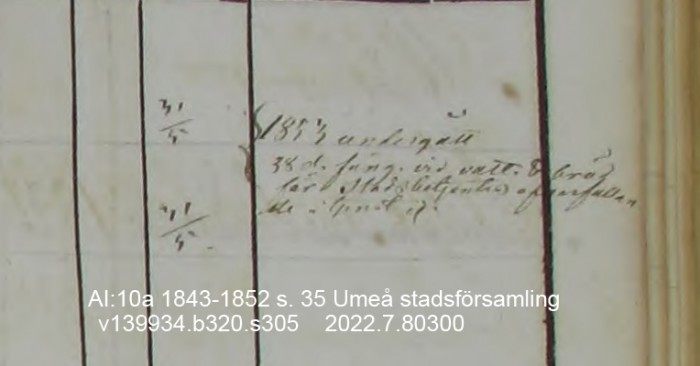 31/5
1853 undergått
28 d. fäng. vid vatt. & bröd
för Stadsbetjentes öfverfallan
de i April
31/5
AI:10a 1843-1852 s. 35 Umeå stadsförsamling
v139934.b320.s305 2022.7.80300